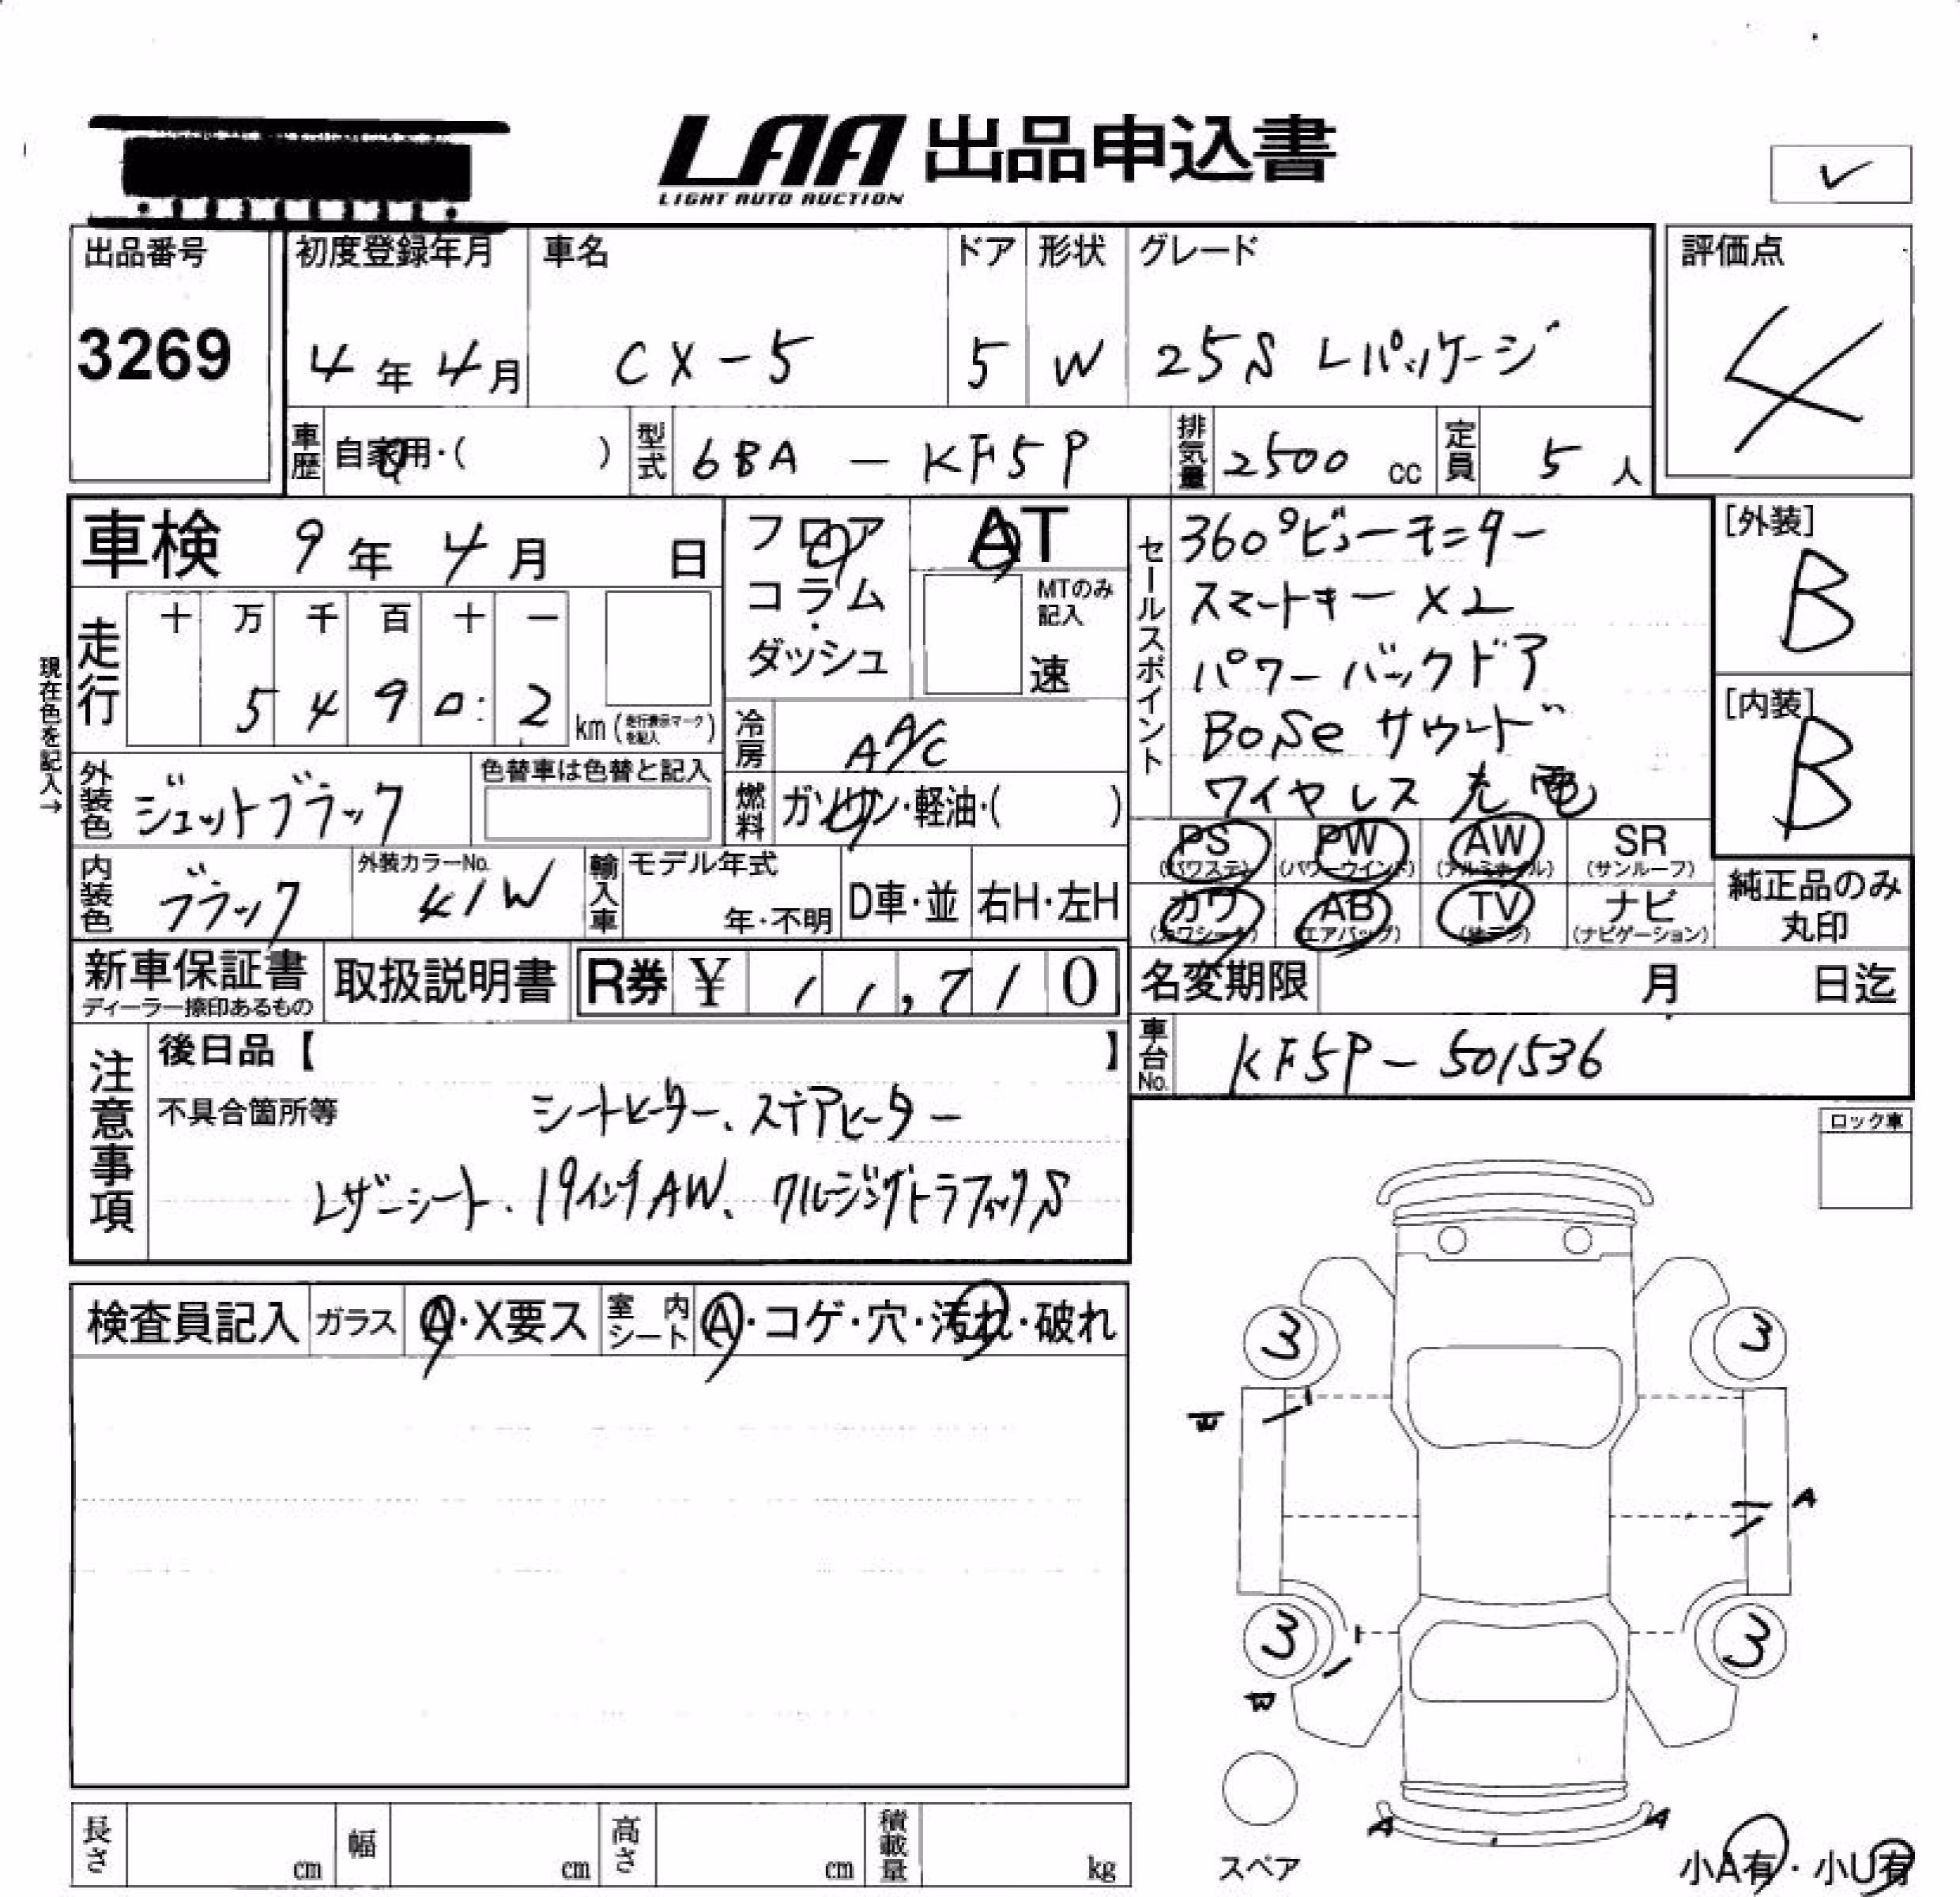 LAA 出品申込書
LIGHT AUTO AUCTION
出品番号
3269
初度登録年月
4年 4月
車名
CX-5
ドア
5
形状
W
グレード
25S Lパッケージ
評価点
4
車歴
自家用・( )
型式
6BA - KF5P
排気量
2500 cc
定員
5 人
車検 9年 4月 日
フロア
コラム
ダッシュ
AT
MTのみ記入
速
セールスポイント
360°ビューモニター
スマートキー×2
パワーバックドア
BoSe サウンド
ワイヤレス充電
[外装]
B
[内装]
B
現在色を記入→
走行
十 万 千 百 十 一
5 4 9 0 2
km (走行表示マークを記入)
冷房
A A/C
外装色
ジェットブラック
色替車は色替と記入
燃料
ガソリン・軽油・( )
PS (パワステ)
PW (パワーウインド)
AW (アルミホイル)
SR (サンルーフ)
内装色
ブラック
外装カラーNo.
41W
輸入車
モデル年式
年・不明
D車・並
右H・左H
カワ (カワシート)
AB (エアバッグ)
TV (地デジ)
ナビ (ナビゲーション)
純正品のみ丸印
新車保証書
ディーラー捺印あるもの
取扱説明書
R券 ¥ 11,710
名変期限 月 日迄
注意事項
後日品【 】
車台No.
KF5P-501536
不具合箇所等
シートヒーター、ステアヒーター
レザーシート、19インチAW、クルージングトラフィックS
ロック車
検査員記入
ガラス
A・X要ス
室内シート
A・コゲ・穴・汚れ・破れ
3 3
A
3 3
A A
スペア
小A有・小U有
長さ cm
幅 cm
高さ cm
積載量 kg